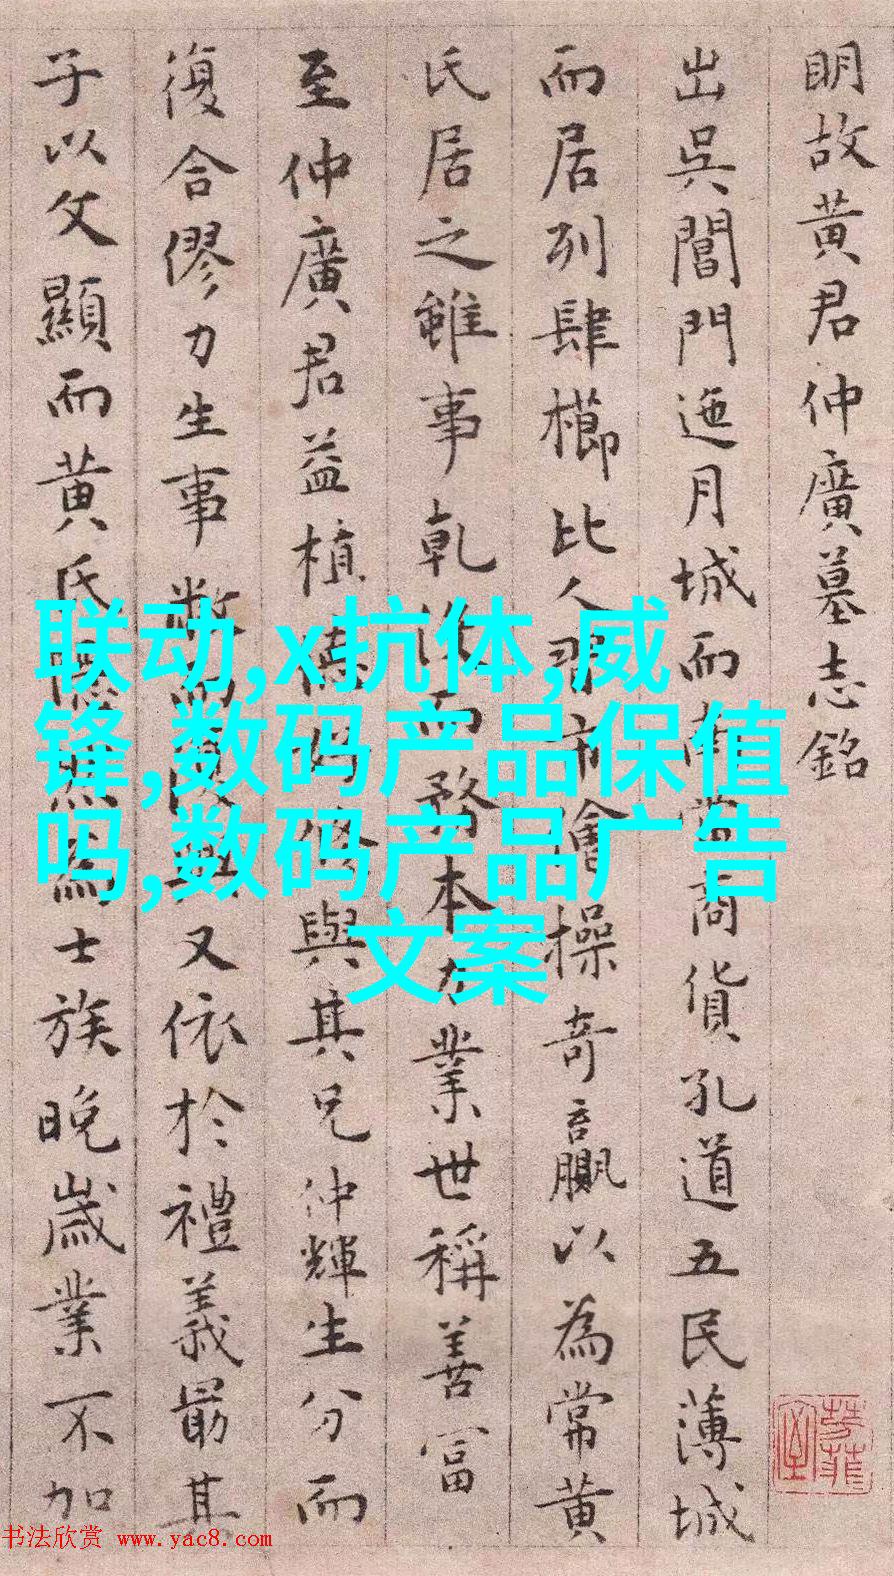 明故黄君仲廣墓志銘
出吳閶門迤月城而南商貨孔道五民薄城
而居列肆櫛比人習市儈操奇贏以為常黄
氏居之雖事乾没而務本力業世稱善富
至仲廣君益植好修與其兄仲輝生分而
復合僇力生事又依於禮義最其
子以文顯而黄氏隱然為士族晚歲業不加
联动,x抗体,威
锋,数码产品保值
吗,数码产品广告
文案
书法欣赏 www.yac8.com